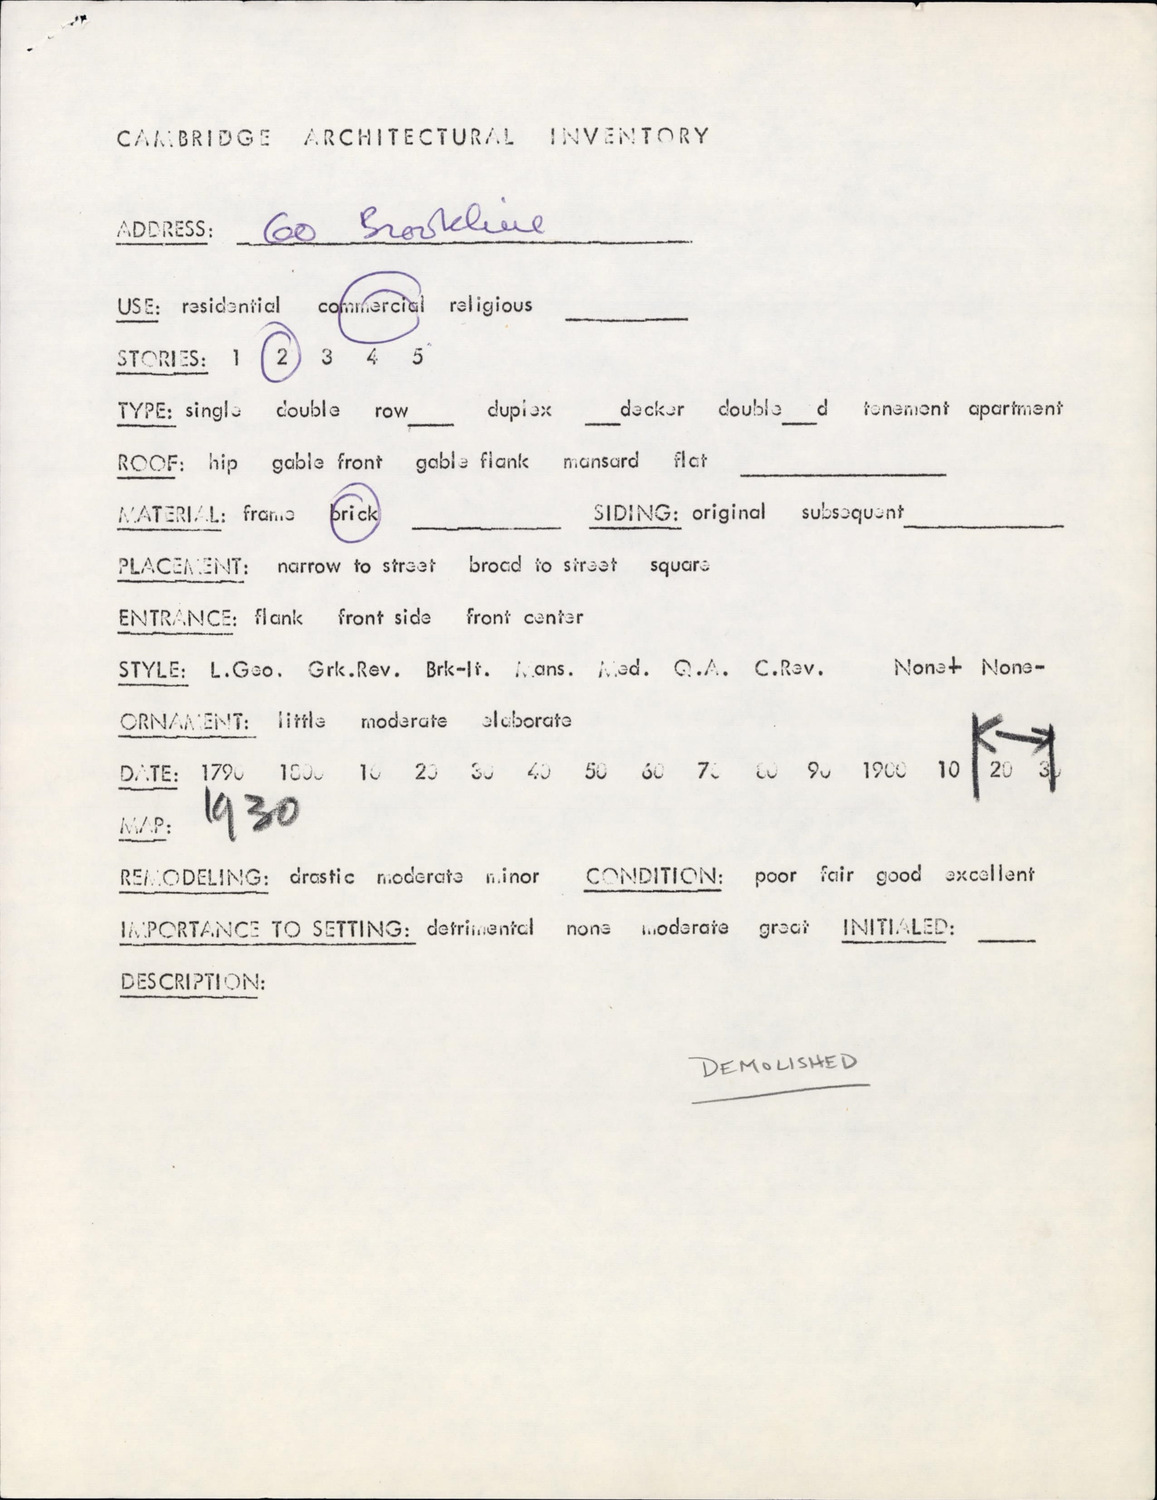 CAMBRIDGE ARCHITECTURAL INVENTORY
ADDRESS: 60 Brookline
USE: residential commercial religious ____
STORIES: 1 2 3 4 5
TYPE: single double row___ duplex ___decker double___d tenement apartment
ROOF: hip gable front gable flank mansard flat ____
MATERIAL: frame brick ____ SIDING: original subsequent____
PLACEMENT: narrow to street broad to street square
ENTRANCE: flank front side front center
STYLE: L.Geo. Grk.Rev. Brk-It. Mans. Med. Q.A. C.Rev. None+ None-
ORNAMENT: little moderate elaborate
DATE: 1790 1800 10 20 30 40 50 60 70 80 90 1900 10 20 30
MAP: 1930
REMODELING: drastic moderate minor CONDITION: poor fair good excellent
IMPORTANCE TO SETTING: detrimental none moderate great INITIALED: ____
DESCRIPTION:
DEMOLISHED